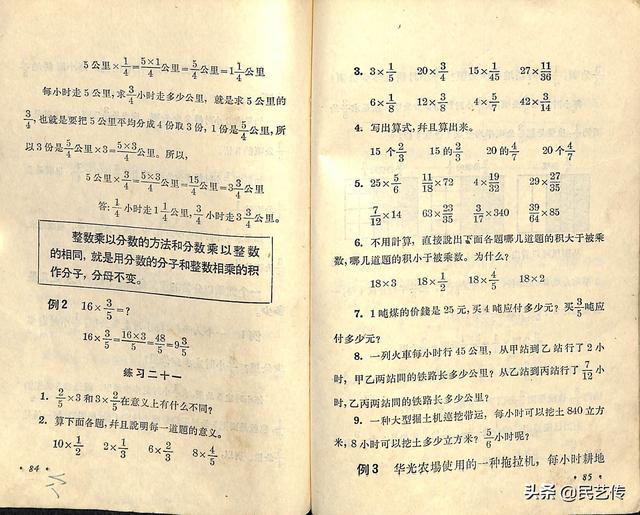 5公里×1/4=5×1/4公里=5/4公里=1 1/4公里
每小时走5公里,求3/4小时走多少公里,就是求5公里的
3/4,也就是要把5公里平均分成4份取3份,1份是5/4公里,所
以3份是5/4公里×3=5×3/4公里。所以,
5公里×3/4=5×3/4公里=15/4公里=3 3/4公里
答:1/4小时走1 1/4公里,3/4小时走3 3/4公里。
整数乘以分数的方法和分数乘以整数
的相同,就是用分数的分子和整数相乘的积
作分子,分母不变。
例2 16×3/5=?
16×3/5=16×3/5=48/5=9 3/5
练习二十一
1. 2/5×3和3×2/5在意义上有什么不同?
2. 算下面各题,并且说明每一道题的意义。
10×1/2 2×1/3 6×2/3 8×4/5
·84·
3. 3×1/5 20×3/4 15×1/45 27×11/36
6×1/8 12×3/8 4×5/7 42×3/14
4. 写出算式,并且算出来。
15个2/3 15的2/3 20的4/7 20个4/7
5. 25×5/6 11/18×72 4×19/32 29×27/35
7/12×14 63×23/35 3/17×340 39/64×85
6. 不用計算,直接說出下面各題哪几道題的积大于被乘
数,哪几道題的积小于被乘数。为什么?
18×3 18×1/3 18×4/5 18×2
7. 1吨煤的价錢是25元,买4吨应付多少元?买3/5吨应
付多少元?
8. 一列火車每小时行45公里,从甲站到乙站行了2小
时,甲乙两站間的铁路长多少公里?从乙站到丙站行了7/12小
时,乙丙两站間的铁路长多少公里?
9. 一种大型掘土机巡挖带运,每小时可以挖土840立方
米,8小时可以挖土多少立方米?5/6小时呢?
例3 华光农場使用的一种拖拉机,每小时耕地
·85·
头条 @民艺传